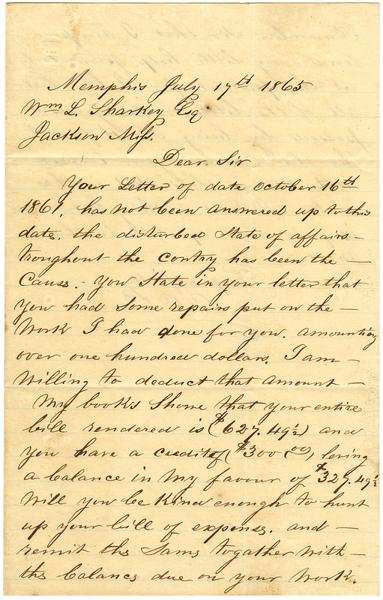 Memphis July 17th 1865
Wm L. Sharkey Esq
Jackson Miss.
Dear Sir
Your Letter of date October 16th
1861, has not been answered up to this
date. the disturbed State of affairs –
troughout the contry has been the –
Caus. – you State in your letter that
you had Some repairs put on the –
Work I had done for you. amounting
over one hundred dollars. I am –
Willing to deduct that amount –
My books Shone that your entire
bill rendered is ($627.49½) and
you have a credit of ($300 00), leving
a balance in my favour of $327.49½
Will you be Kind enough to hunt
up your bill of expens. and –
remit ths Sams togather with –
ths balancs due on your Work.